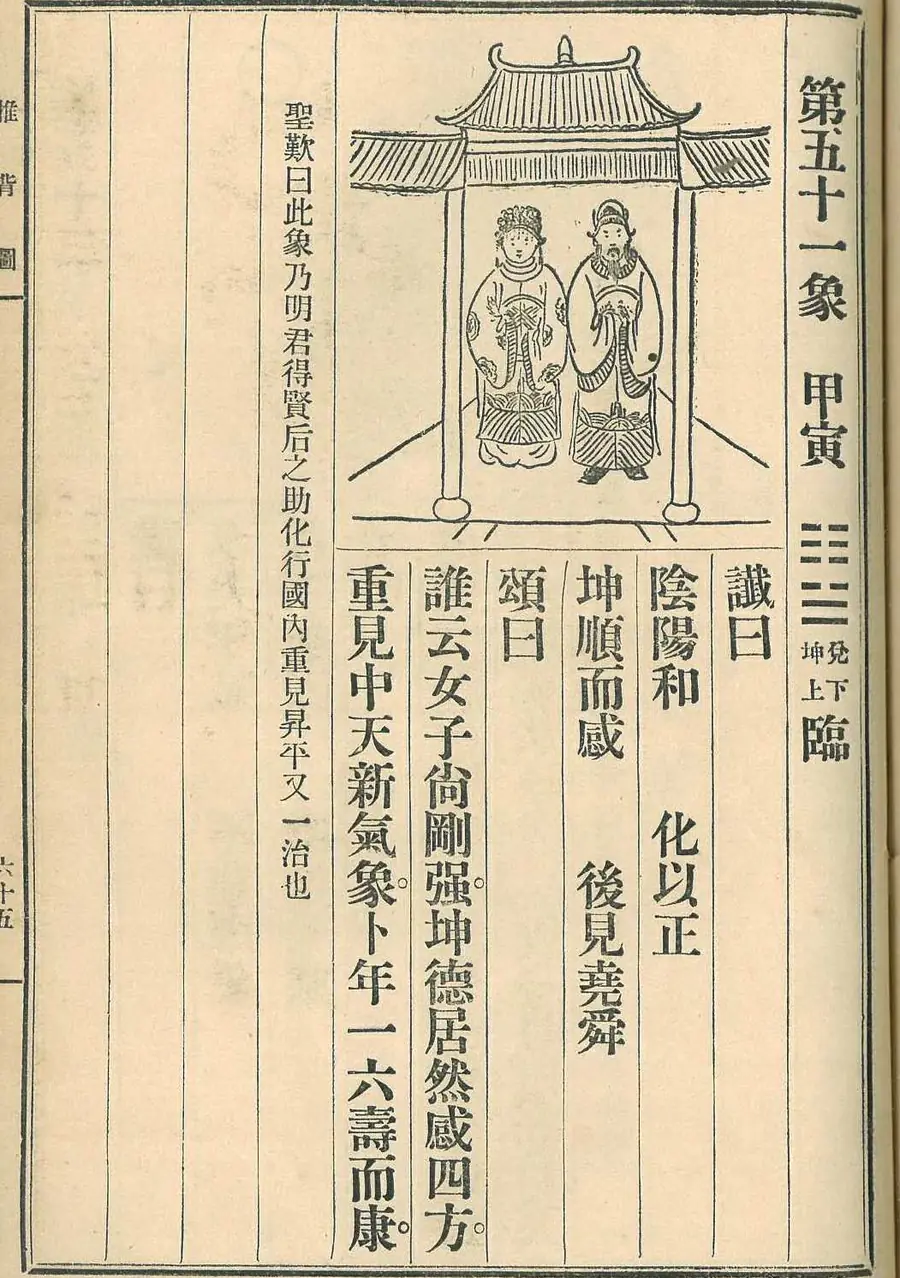 第五十一象 甲寅 ䷒ 兌下坤上 臨
讖曰
陰陽和 化以正
坤順而感 後見堯舜
頌曰
誰云女子尚剛强。坤德居然感四方。
重見中天新氣象。卜年一六壽而康。
聖歎曰此象乃明君得賢后之助化行國內重見昇平又一治也
推背圖
六十五